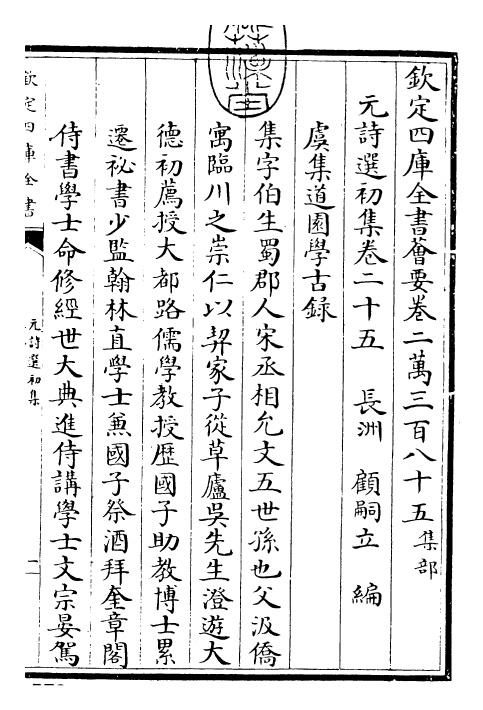 欽定四庫全書薈要卷二萬三百八十五 集部
元詩選初集卷二十五 長洲 顧嗣立 編
虞集道園學古録
集字伯生蜀郡人宋丞相允文五世孫也父汲僑
寓臨川之崇仁以契家子從草廬吳先生澄遊大
德初薦授大都路儒學教授歴國子助教博士累
遷祕書少監翰林直學士兼國子祭酒拜奎章閣
侍書學士命修經世大典進侍講學士文宗晏駕
欽定四庫全書
元詩選初集